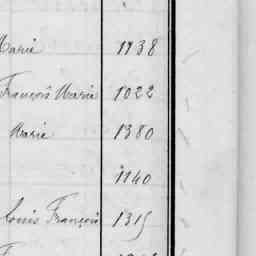 Marie 1138
François Marie 1022
Marie 1380
1140
Louis François 1315